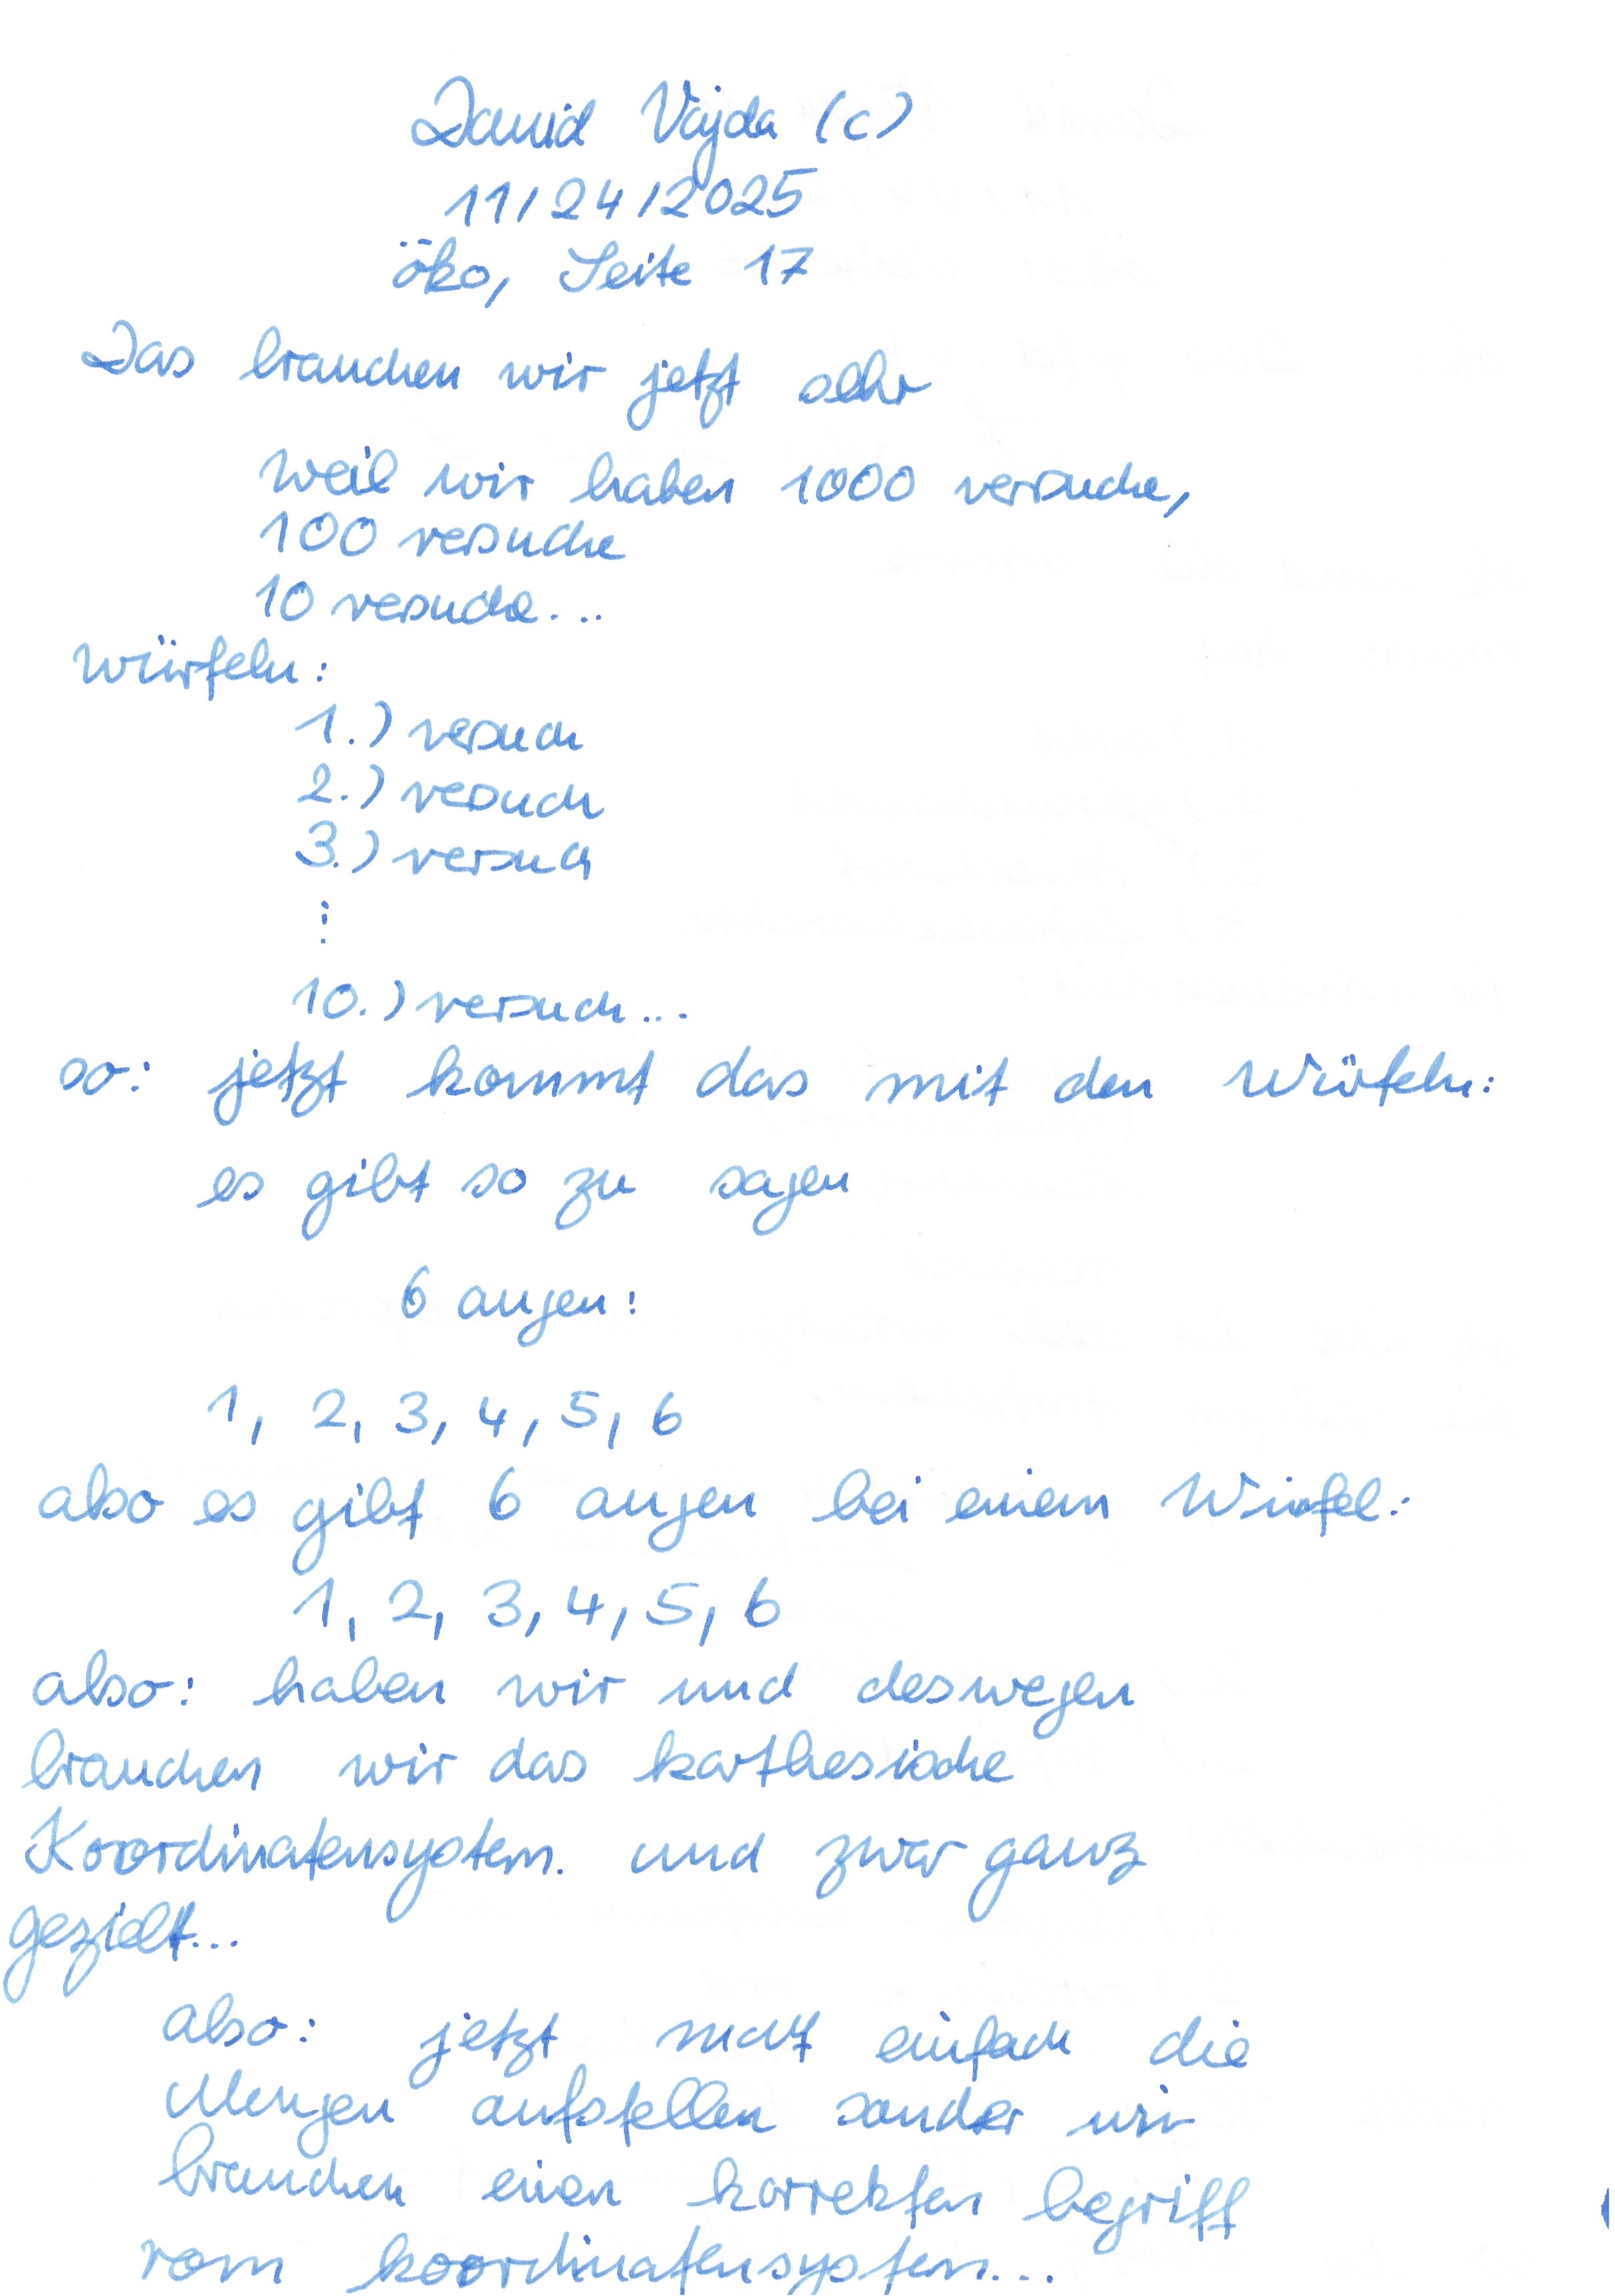 David Vajda (c)
11/24/2025
öko, Seite 17
Das brauchen wir jetzt sehr
Weil wir haben 1000 versuche,
100 versuche
10 versuche...
Würfeln:
1.) versuch
2.) versuch
3.) versuch
⋮
10.) versuch...
so: jetzt kommt das mit den Würfeln:
es gibt so zu sagen
6 augen:
1, 2, 3, 4, 5, 6
also es gibt 6 augen bei einem Würfel:
1, 2, 3, 4, 5, 6
also: haben wir und deswegen
brauchen wir das karthesische
Koordinatensystem. und zwar ganz
gezielt...
also: jetzt einfach die
Mengen aufstellen sonder wir
brauchen einen korrekten begriff
vom koordinatensystem...